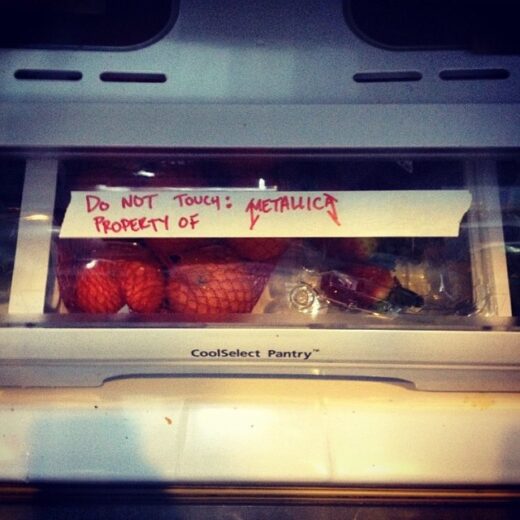 DO NOT TOUCH: METALLICA
PROPERTY OF
CoolSelect Pantry™